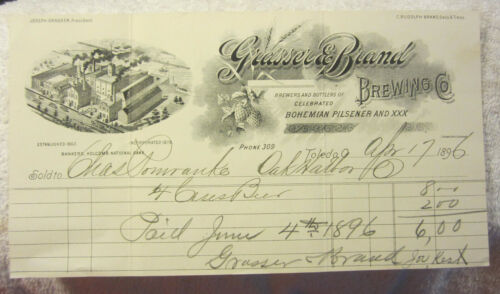 JOSEPH GRASSER, President.
C. RUDOLPH BRAND, Sec'y & Treas.
Grasser & Brand
BREWING CO.
BREWERS AND BOTTLERS OF
CELEBRATED
BOHEMIAN PILSENER AND XXX
ESTABLISHED 1862
INCORPORATED 1878
BANKERS, HOLCOMB NATIONAL BANK.
PHONE 309
Toledo, O. Apr 17 1896
Sold to Chas Pomranke Oak Harbor O
4 Cases Beer 8.00
2.00
Paid June 4th 1896 6,00
Grasser & Brand